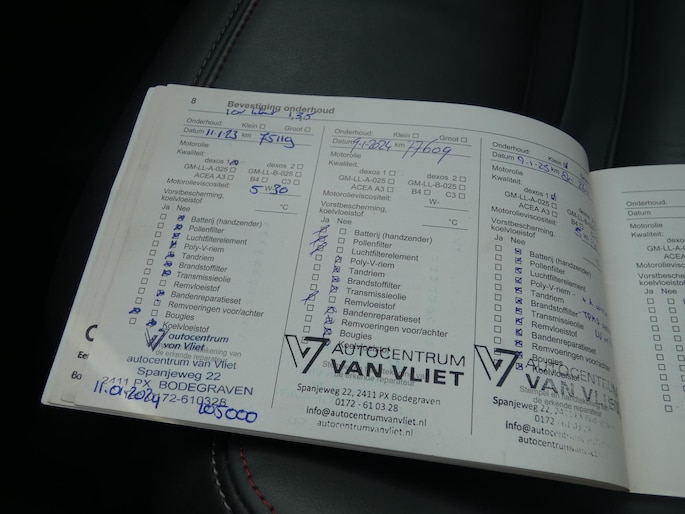 8
Bevestiging onderhoud
Onderhoud: Klein Groot
Datum 11-1-23 km 75119
Motorolie
Kwaliteit:
dexos 1 dexos 2
GM-LL-A-025 GM-LL-B-025
ACEA A3 B4 C3
Motorolieviscositeit: 5 W-30
Vorstbescherming,
koelvloeistof °C
Ja Nee
Batterij (handzender)
Pollenfilter
Luchtfilterelement
Poly-V-riem
Tandriem
Brandstoffilter
Transmissieolie
Remvloeistof
Bandenreparatieset
Remvoeringen voor/achter
Bougies
Koelvloeistof
autocentrum
van Vliet
de erkende reparateur
autocentrum van Vliet
Spanjeweg 22
2411 PX BODEGRAVEN
0172-610328
11.01.2024 105000
Onderhoud: Klein Groot
Datum 9-1-2024 km 77609
Motorolie
Kwaliteit:
dexos 1 dexos 2
GM-LL-A-025 GM-LL-B-025
ACEA A3 B4 C3
Motorolieviscositeit: W-
Vorstbescherming,
koelvloeistof °C
Ja Nee
Batterij (handzender)
Pollenfilter
Luchtfilterelement
Poly-V-riem
Tandriem
Brandstoffilter
Transmissieolie
Remvloeistof
Bandenreparatieset
Remvoeringen voor/achter
Bougies
Koelvloeistof
AUTOCENTRUM
VAN VLIET
de erkende reparateur
Spanjeweg 22, 2411 PX Bodegraven
0172 - 61 03 28
info@autocentrumvanvliet.nl
autocentrumvanvliet.nl
Onderhoud: Klein
Datum 9-1-25 km
Motorolie
Kwaliteit:
dexos 1
GM-LL-A-025
ACEA A3
Motorolieviscositeit:
Vorstbescherming,
koelvloeistof
Ja Nee
Batterij (handzender)
Pollenfilter
Luchtfilterelement
Poly-V-riem
Tandriem
Brandstoffilter
Transmissieolie
Remvloeistof
Bandenreparatieset
Remvoeringen
Bougies
Koelvloeistof
AUTOCENTRUM
VAN VLIET
Stempel en
de erkende reparateur
Spanjeweg 22,
0172 - 61 03 28
info@autocentrum
autocentrumvan
Onderhoud:
Datum
Motorolie
Kwaliteit:
GM-LL-A-025
ACEA A3
Motorolieviscositeit
Vorstbescherming
koelvloeistof
Ja Nee